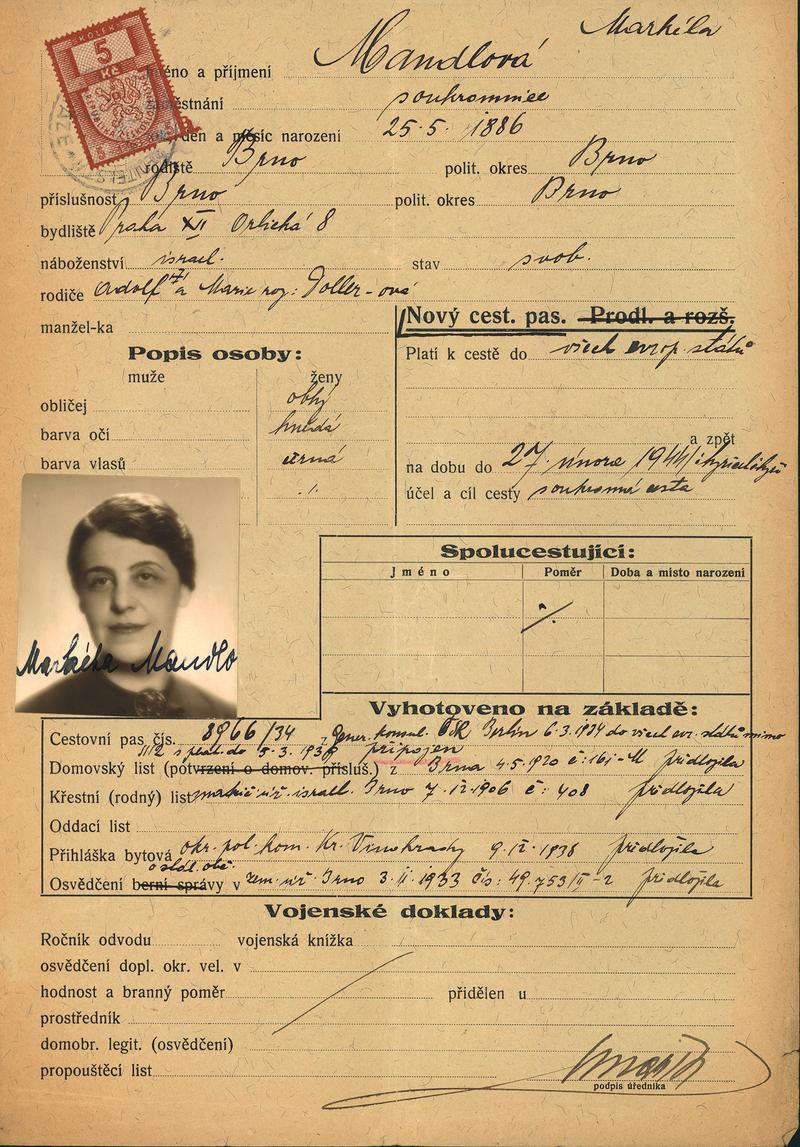 KOLEK
5
Kč
Markéta
jméno a příjmení Mandlová
zaměstnání soukromnice
rok, den a měsíc narození 25.5. 1886
rodiště Brno polit. okres Brno
příslušnost Brno polit. okres Brno
bydliště Praha XII Orlická 8
náboženství israel. stav svob.
rodiče Adolf a Marie roz:
manžel-ka
Nový cest. pas. Prodl. a rozš.
Popis osoby:
Platí k cestě do všech evrop. států
muže ženy
obličej oblý
barva očí hnědá
a zpět
barva vlasů černá
na dobu do 27. února 1944
účel a cíl cesty soukromná cesta
Spolucestující:
Jméno Poměr Doba a místo narození
Markéta Mandlo
Vyhotoveno na základě:
Cestovní pas čís. 8966/34 gener. konsul. ČSR Berlin 6.3.1934 do všech evr. států mimo
připojen
Domovský list (potvrzení o domov. přísluš.) z Brna 4.5.1920 č: 161-M předložila
Křestní (rodný) list israel. Brno 7.12.1906 č: 408 předložila
Oddací list
Přihláška bytová okr. pol. kom. Kr. Vinohrady 9.IX.1938 předložila
o stát. obč.
Osvědčení berní správy v zem. úř. Brno 3.II.1933 čís: 49.753/II-2 předložila
Vojenské doklady:
Ročník odvodu vojenská knížka
osvědčení dopl. okr. vel. v
hodnost a branný poměr přidělen u
prostředník
domobr. legit. (osvědčení)
propouštěcí list
podpis úředníka